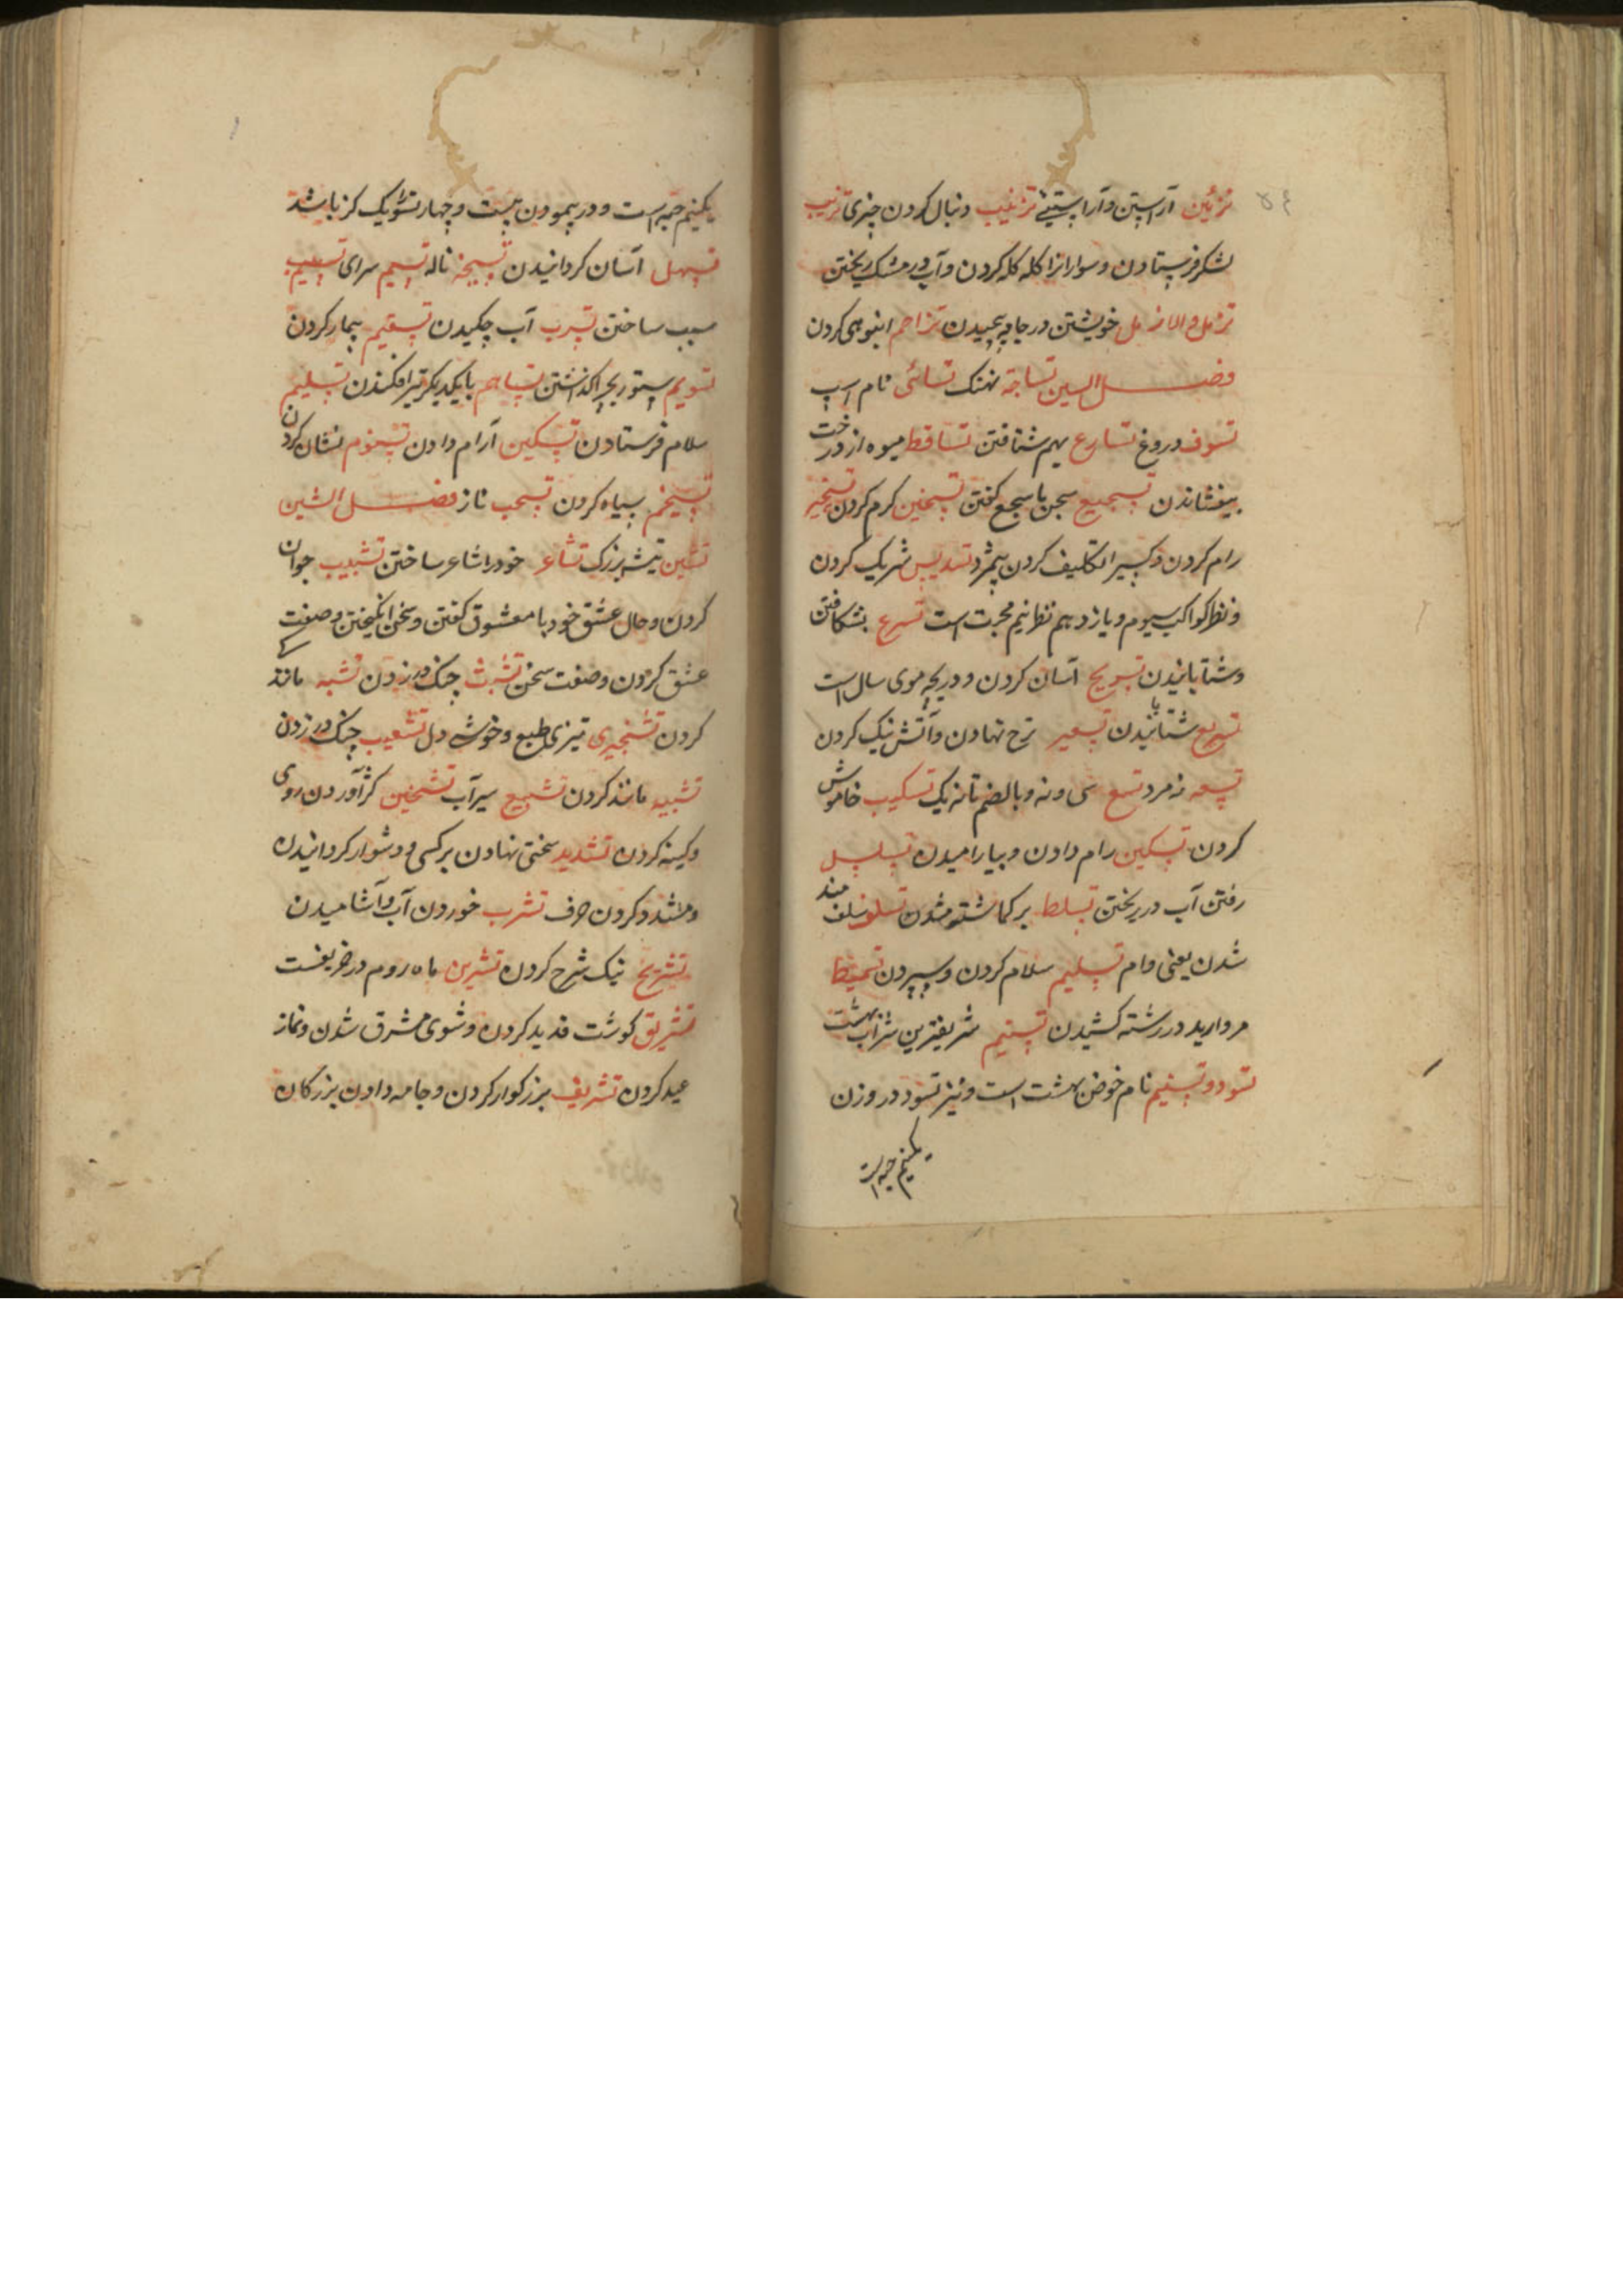 تزئین آراستن و آراستگی تزنیب دنبال کردن چیزی تزبب
لشکر فرستادن و سوارانرا کله کله کردن و آب در مشک ریختن
تزمل والازمل خویشتن در جامه پیچیدن تزاحم انبوهی کردن
فصل السین تساجة نهنک تسائی نام اسپ
تسوف دروغ تسارع بهم شتافتن تساقط میوه از درخت
بیفشاندن تسجیع سخن با سجع کفتن تسخین کرم کردن تسخیر
رام کردن و کسیرا تکلیف کردن بیمزد تسدیس شریک کردن
و نظر کواکب سیوم و یازدهم نظر نیم محبت است تسرع بشکافتن
و شتابانیدن تسریح آسان کردن و دریچه موی سال است
تسریع شتابانیدن تسعیر نرخ نهادن و آتش نیک کردن
تسعه نه مرد تسع سی و نه و بالضم تا نه یک تسکیب خاموش
کردن تسکین رام دادن و بیارامیدن تسلسل
رفتن آب در ریختن تسلط بر کماشته شدن تسلف سلف مند
شدن یعنی وام تسلیم سلام کردن و سپردن تسمیط
مروارید در رشته کشیدن تسنیم شریفترین شراب بهشت
تسود و تسنیم نام حوض بهشت است و نیز تسود در وزن
یکنیم حبه است
یکنیم حبه است و در پیمودن بیست و چهار تسو یک کز باشد
تسهل آسان کردانیدن تسیحة ناله تسیم سرای تسبیب
سبب ساختن تسرب آب چکیدن تسقیم بیمار کردن
تسویم ستور بچرا کذاشتن تساهم با یکدیکر تیر افکندن تسلیم
سلام فرستادن تسکین آرام دادن تسنوم نشان کردن
تسخم سیاه کردن تسحب ناز فصل الشین
تشین تیشه بزرک تشاعر خود را شاعر ساختن تشبیب جوان
کردن و حال عشق خود با معشوق کفتن و سخن انکیختن و صفت
عشق کردن و صفت سخن تشبث چنک در زدن تشبه مانند
کردن تشنجیدی تیزی طبع و خوشی دل تشعیب چنک در زدن
تشبیه مانند کردن تشبیع سیر آب تشحین کژ آوردن روی
و کینه کردن تشدید سختی نهادن بر کسی و دشوار کردانیدن
و مشدد کردن حرف تشرب خوردن آب و آشامیدن
تشریح نیک شرح کردن تشرین ماه روم در خریفست
تشریق کوشت قدید کردن و سوی مشرق شدن و نماز
عید کردن تشریف بزرکوار کردن و جامه دادن بزرکان